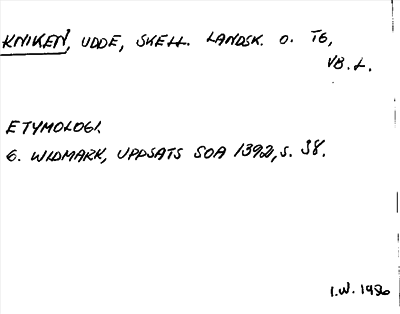 KNIKEN, UDDE, SKELL. LANDSK. O. TG,
VB. L.
ETYMOLOGI.
G. WIDMARK, UPPSATS SOA 1392, S. 38.
I.W. 1986